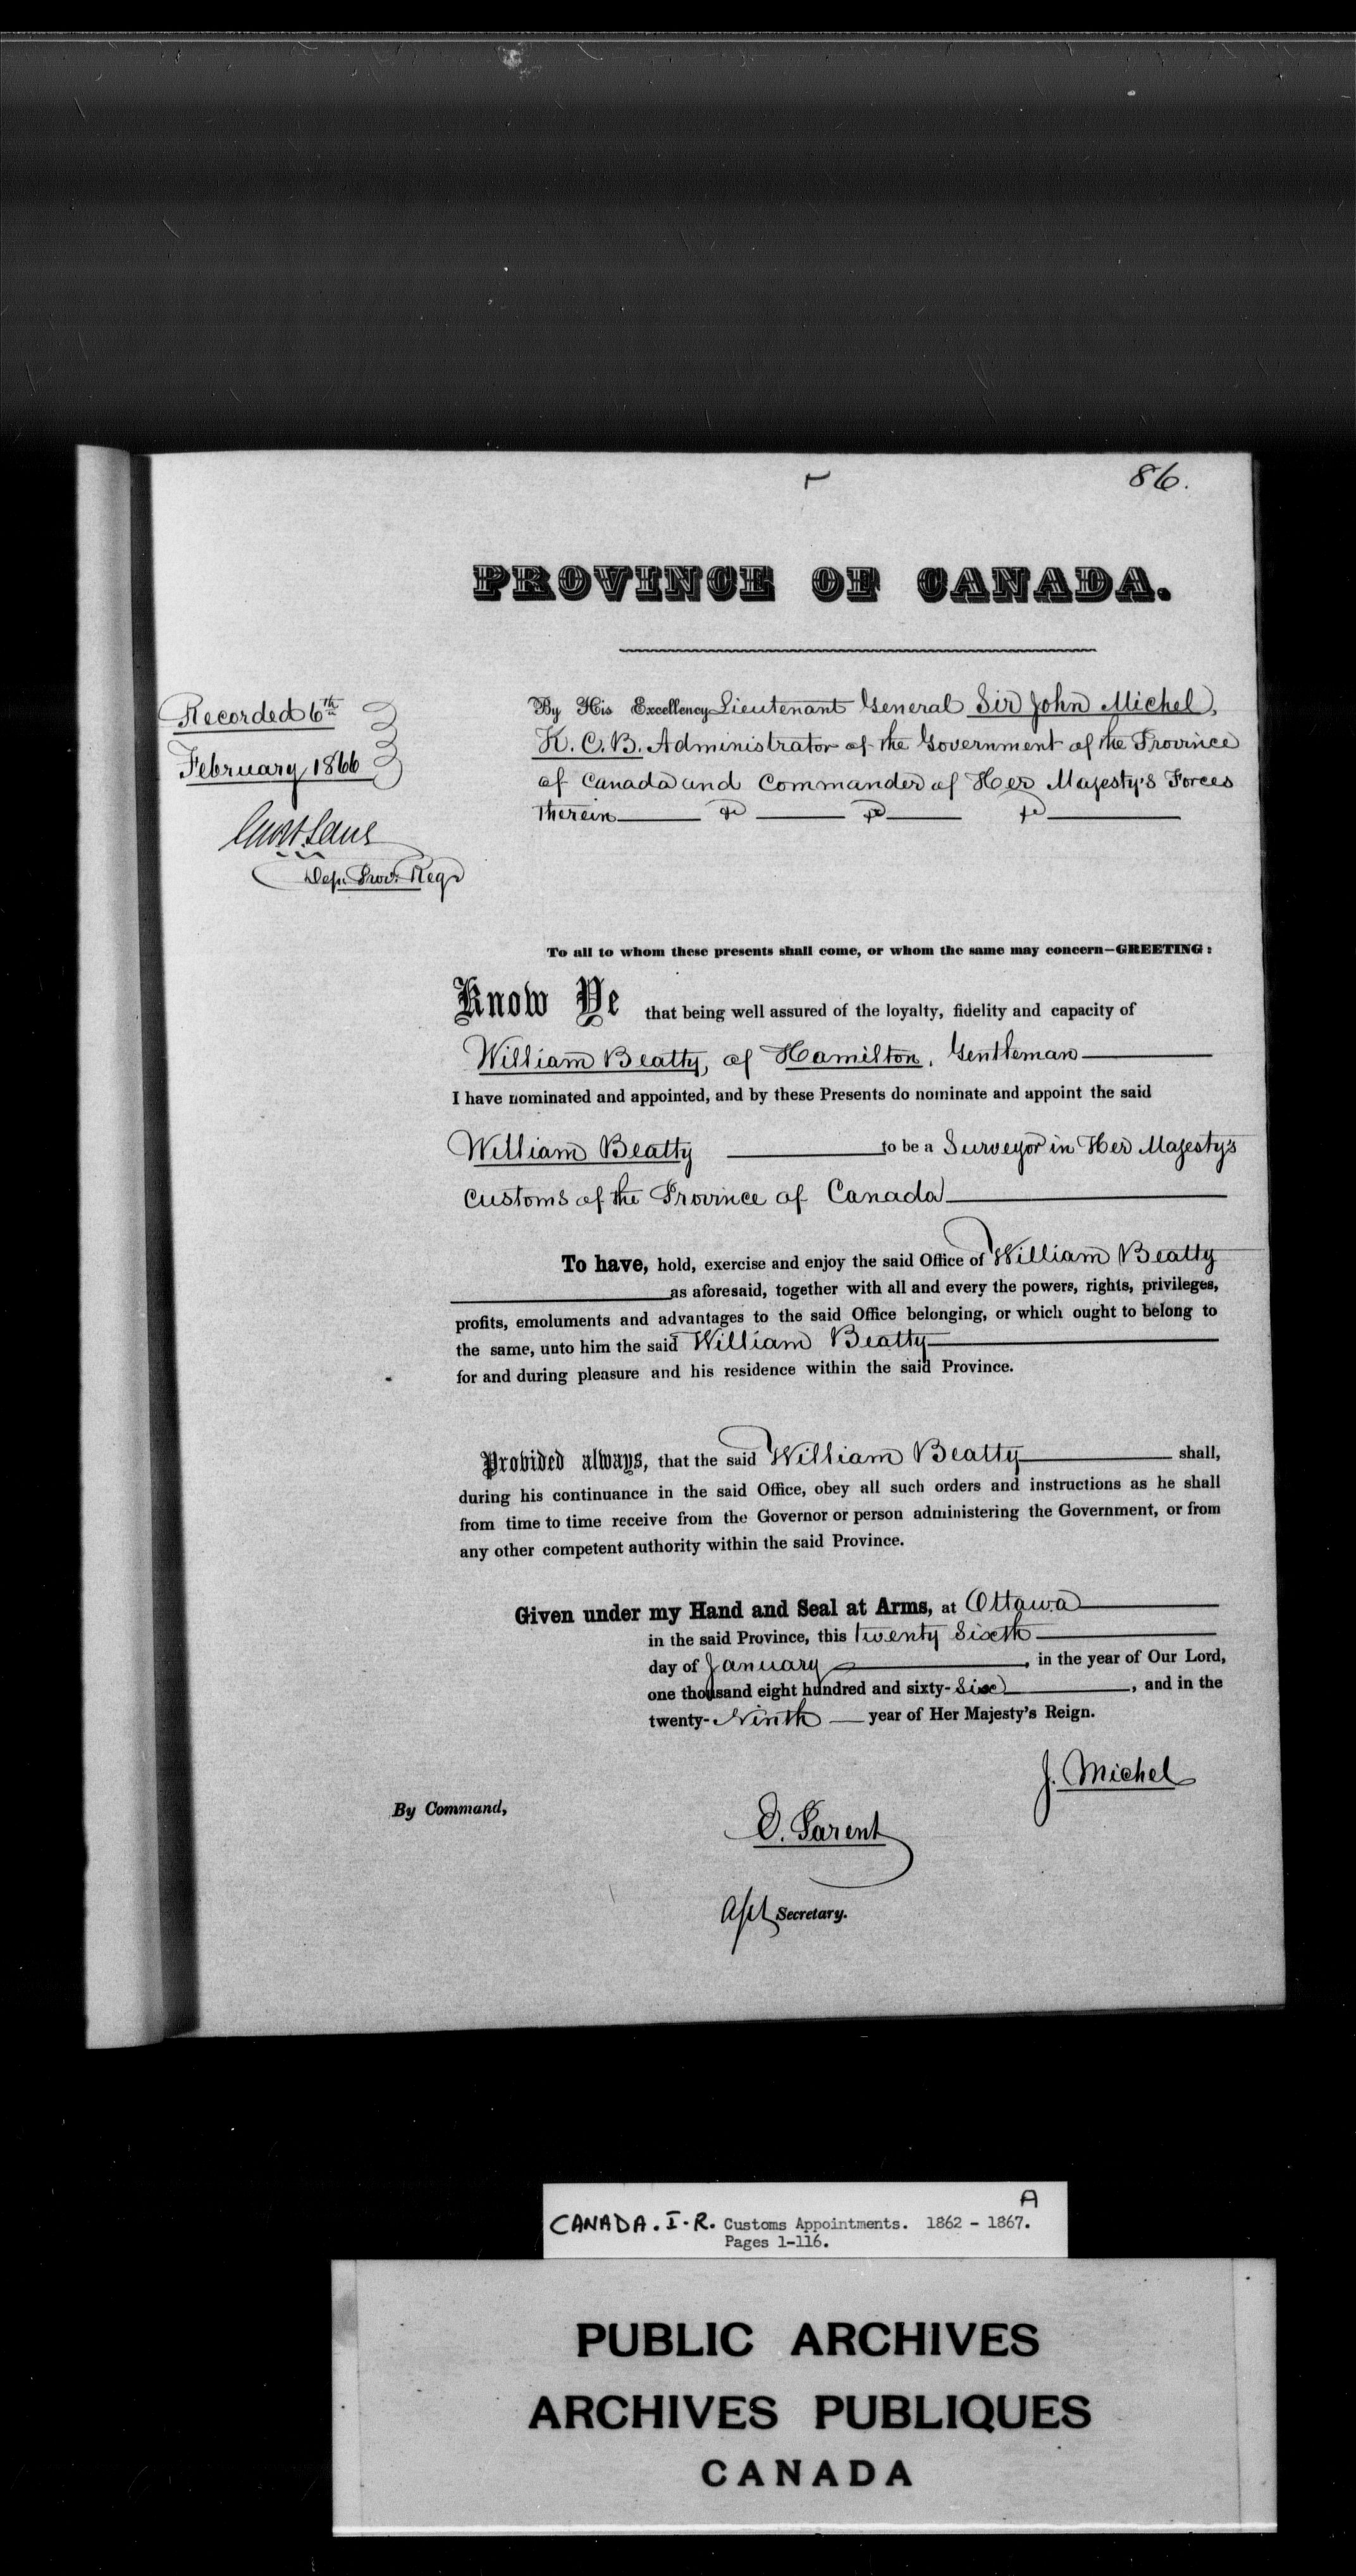 86.
PROVINCE OF CANADA.
Recorded 6th
February 1866
Dep. Prov. Regr
By His Excellency Lieutenant General Sir John Michel,
K. C. B. Administrator of the Government of the Province
of Canada and Commander of Her Majesty's Forces
Therein &c &c &c
To all to whom these presents shall come, or whom the same may concern—GREETING:
Know Ye that being well assured of the loyalty, fidelity and capacity of
William Beatty, of Hamilton, Gentleman
I have nominated and appointed, and by these Presents do nominate and appoint the said
William Beatty to be a Surveyor in Her Majesty's
Customs of the Province of Canada
To have, hold, exercise and enjoy the said Office of William Beatty
as aforesaid, together with all and every the powers, rights, privileges,
profits, emoluments and advantages to the said Office belonging, or which ought to belong to
the same, unto him the said William Beatty
for and during pleasure and his residence within the said Province.
Provided always, that the said William Beatty shall,
during his continuance in the said Office, obey all such orders and instructions as he shall
from time to time receive from the Governor or person administering the Government, or from
any other competent authority within the said Province.
Given under my Hand and Seal at Arms, at Ottawa
in the said Province, this twenty Sixth
day of January, in the year of Our Lord,
one thousand eight hundred and sixty-Six, and in the
twenty-Ninth year of Her Majesty's Reign.
J. Michel
By Command,
E. Parent
Asst Secretary.
A
CANADA. I-R. Customs Appointments. 1862 - 1867.
Pages 1-116.
PUBLIC ARCHIVES
ARCHIVES PUBLIQUES
CANADA